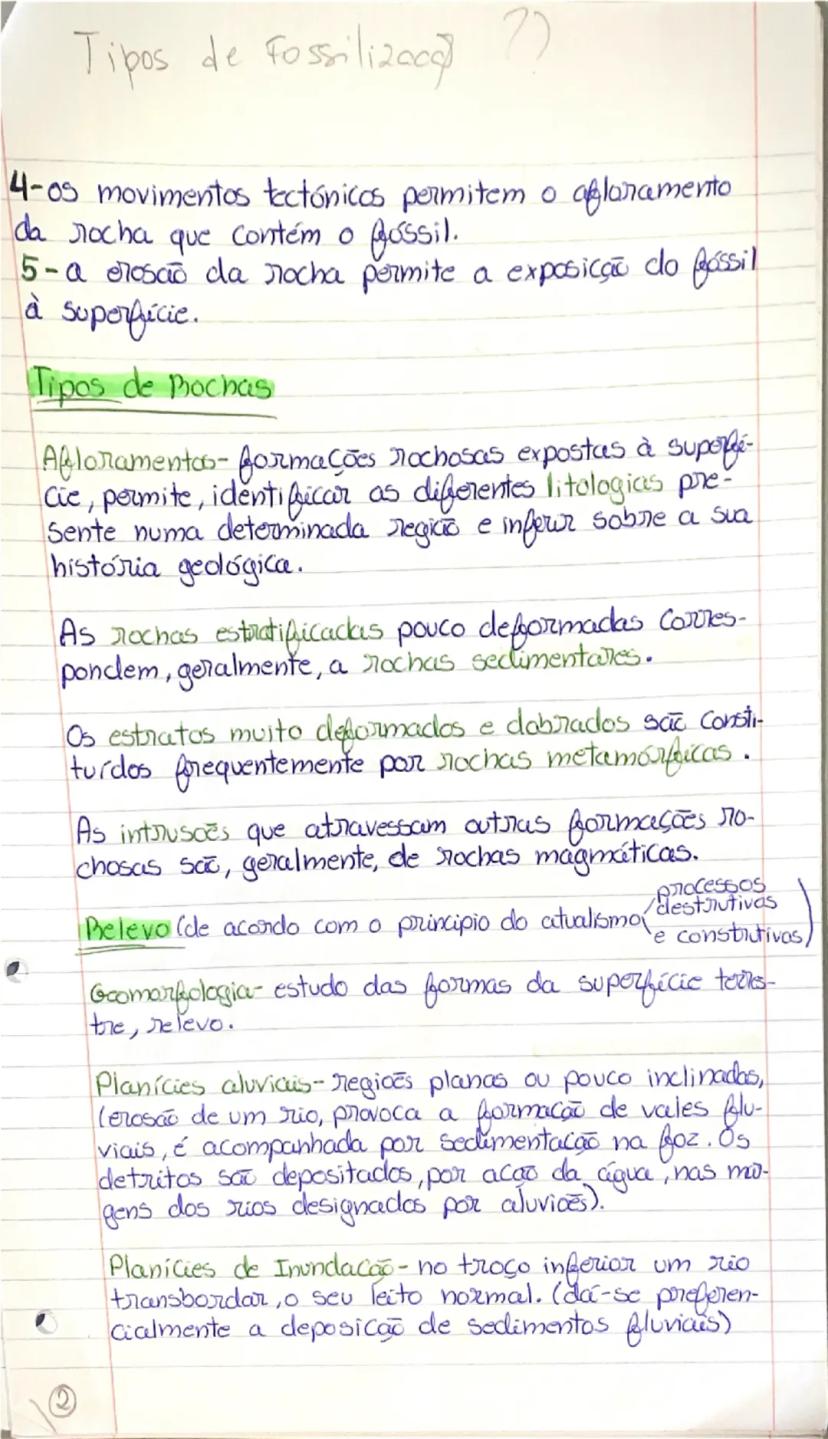 Tipos de Fossilizaçõ ??
4-os movimentos tectónicos permitem o afloramento
da rocha que contém o fóssil.
5-a erosão da rocha permite a exposicção do fóssil
à superfície.
Tipos de Rochas
Afloramentos- formações rochosas expostas à superfí-
cie, permite, identificar as diferentes litologias pre-
sente numa determinada região e inferir sobre a sua
história geológica.
As rochas estratificadas pouco deformadas corres-
pondem, geralmente, a rochas sedimentares.
Os estratos muito deformados e dobrados são consti-
tuídos frequentemente por rochas metamórficas.
As intrusões que atravessam outras formações ro-
chosas são, geralmente, de rochas magmáticas.
Relevo (de acordo com o principio do atualismo
processos
destrutivos
e construtivos)
Geomorfologia- estudo das formas da superfície terres-
tre, relevo.
Planícies aluviais- regiões planas ou pouco inclinadas,
(erosão de um rio, provoca a formação de vales flu-
viais, é acompanhada por sedimentação na foz. Os
detritos são depositados, por acção da água, nas mar-
gens dos rios designados por aluviões).
Planícies de Inundação- no troço inferior um rio
transbordar, o seu leito normal. (dá-se preferen-
cialmente a deposição de sedimentos fluviais)
2